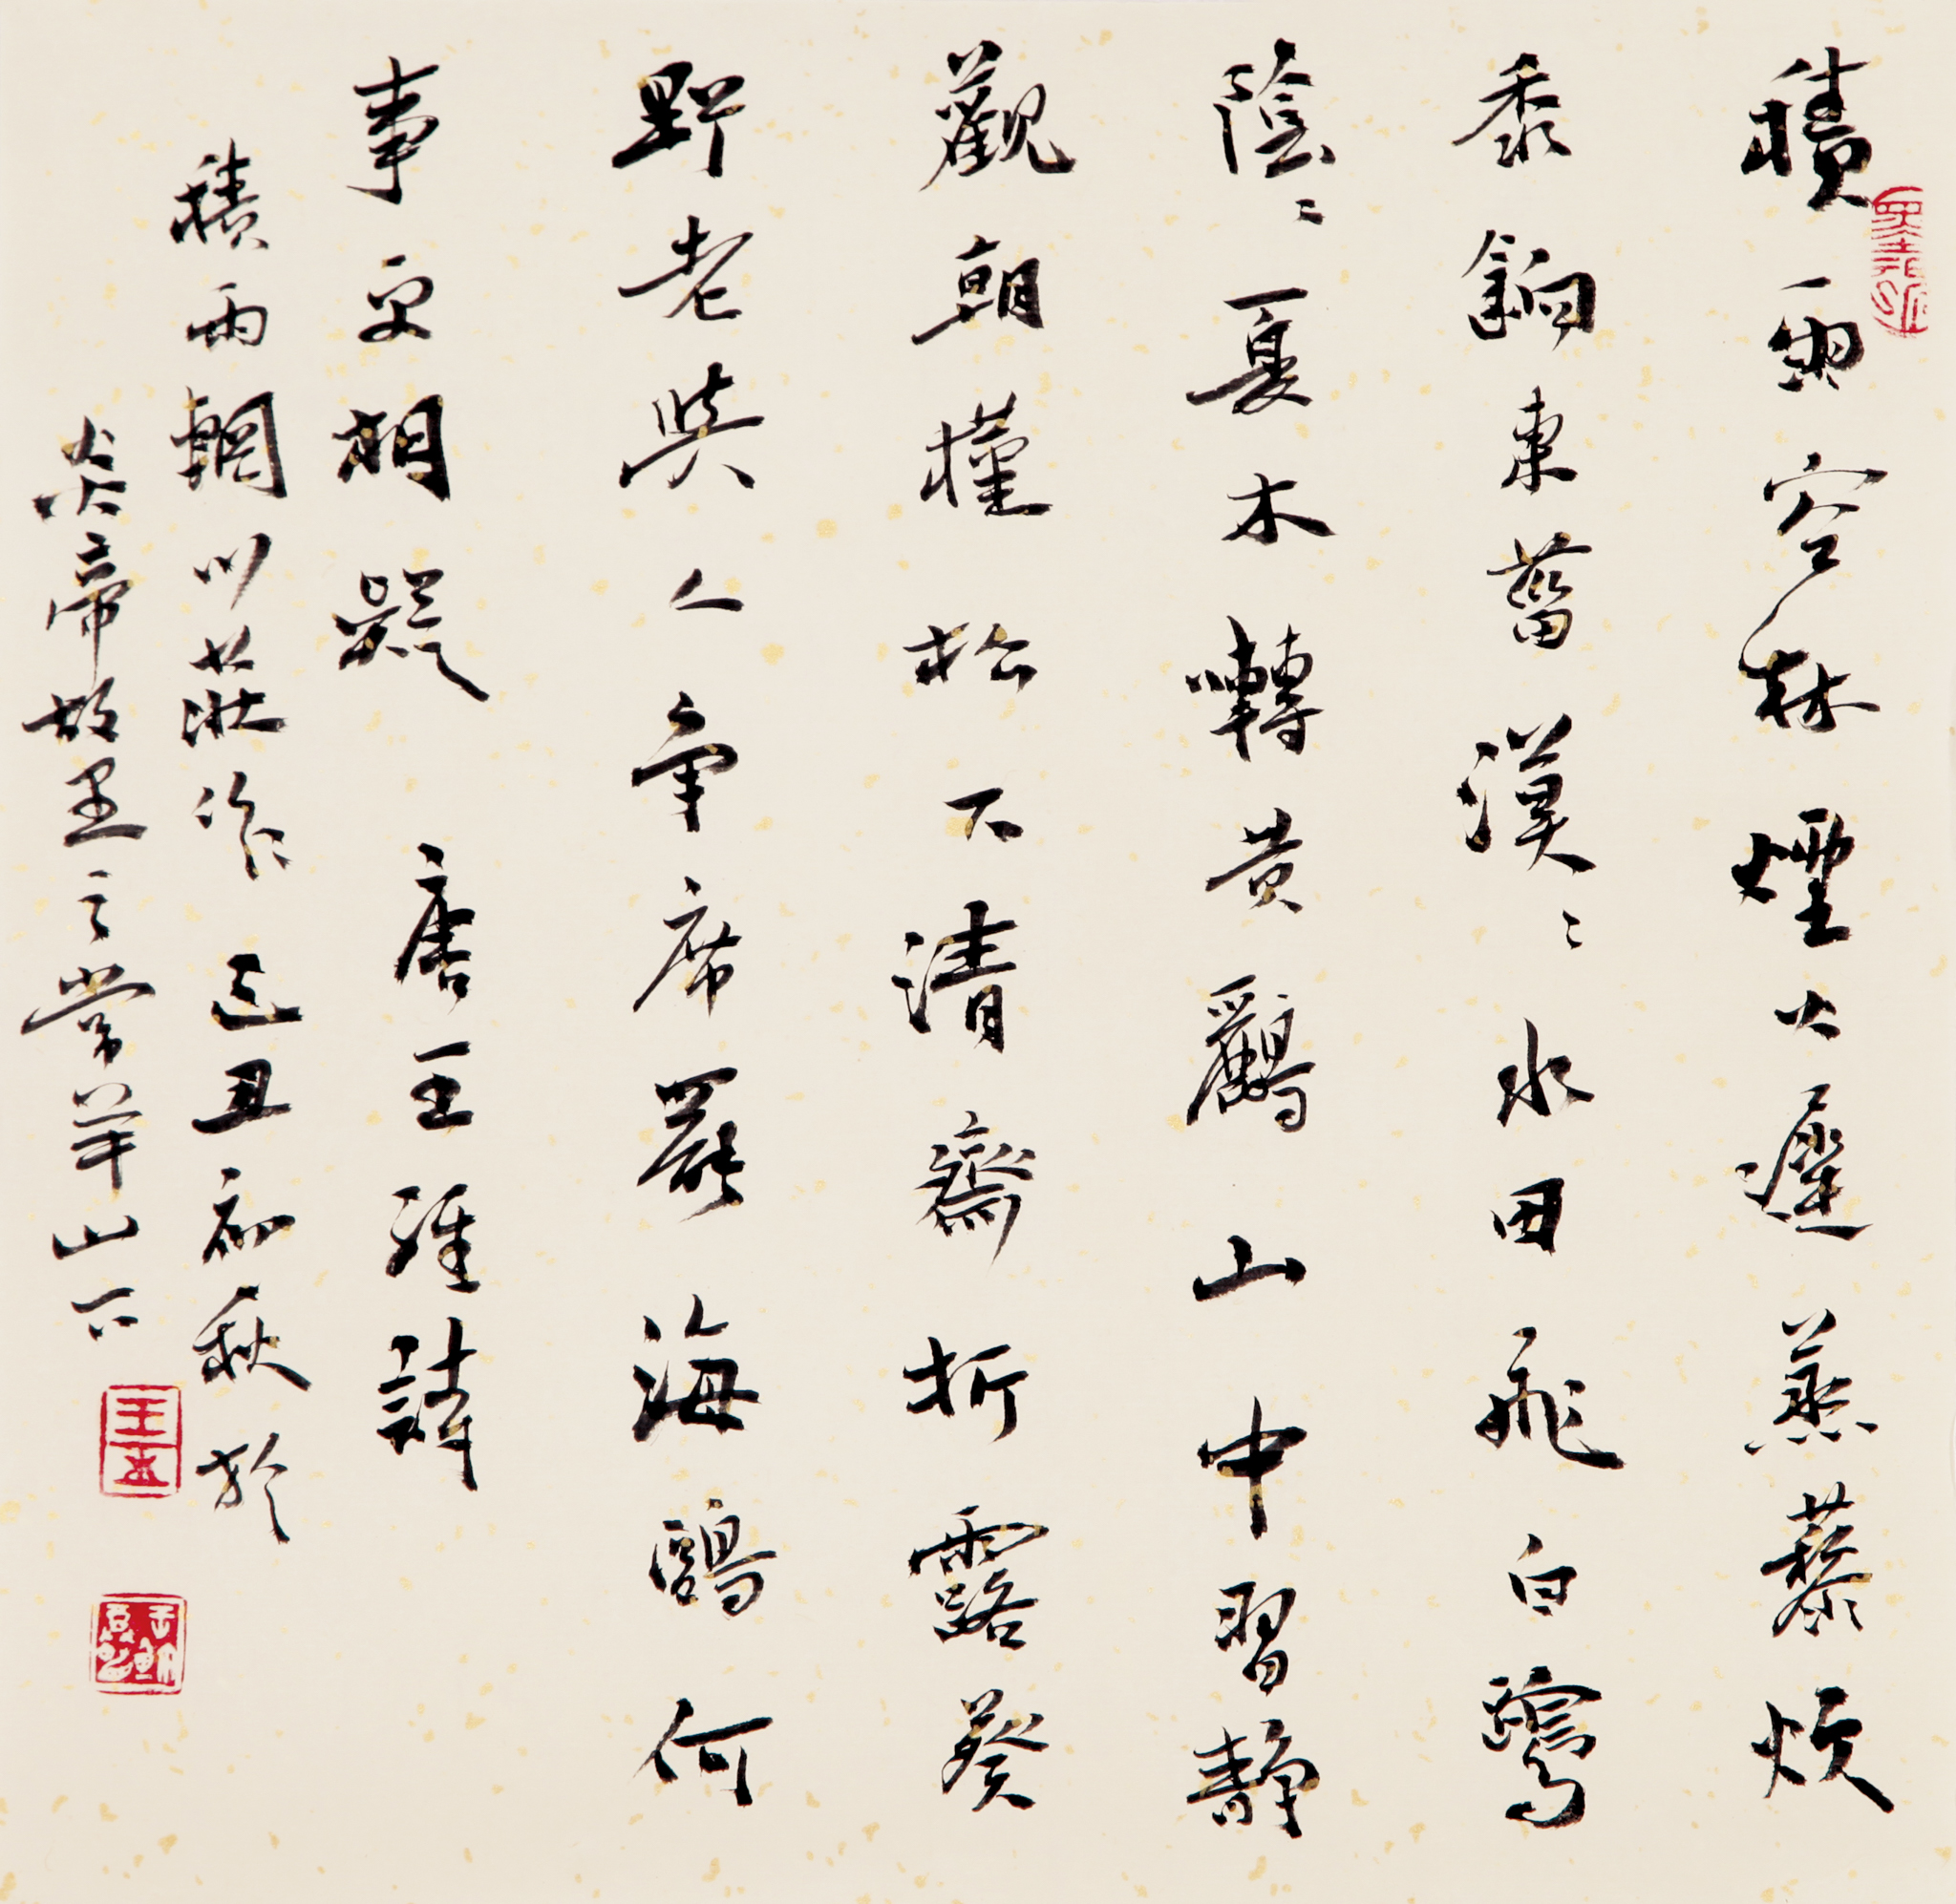 積雨空林煙火遲蒸藜炊
黍餉東菑漠〻水田飛白鷺
陰〻夏木囀黃鸝山中習靜
觀朝槿松下清齋折露葵
野老與人爭席罷海鷗何
事更相疑 唐王維詩
積雨輞川莊作 己丑初秋於
炎帝故里之常羊山下